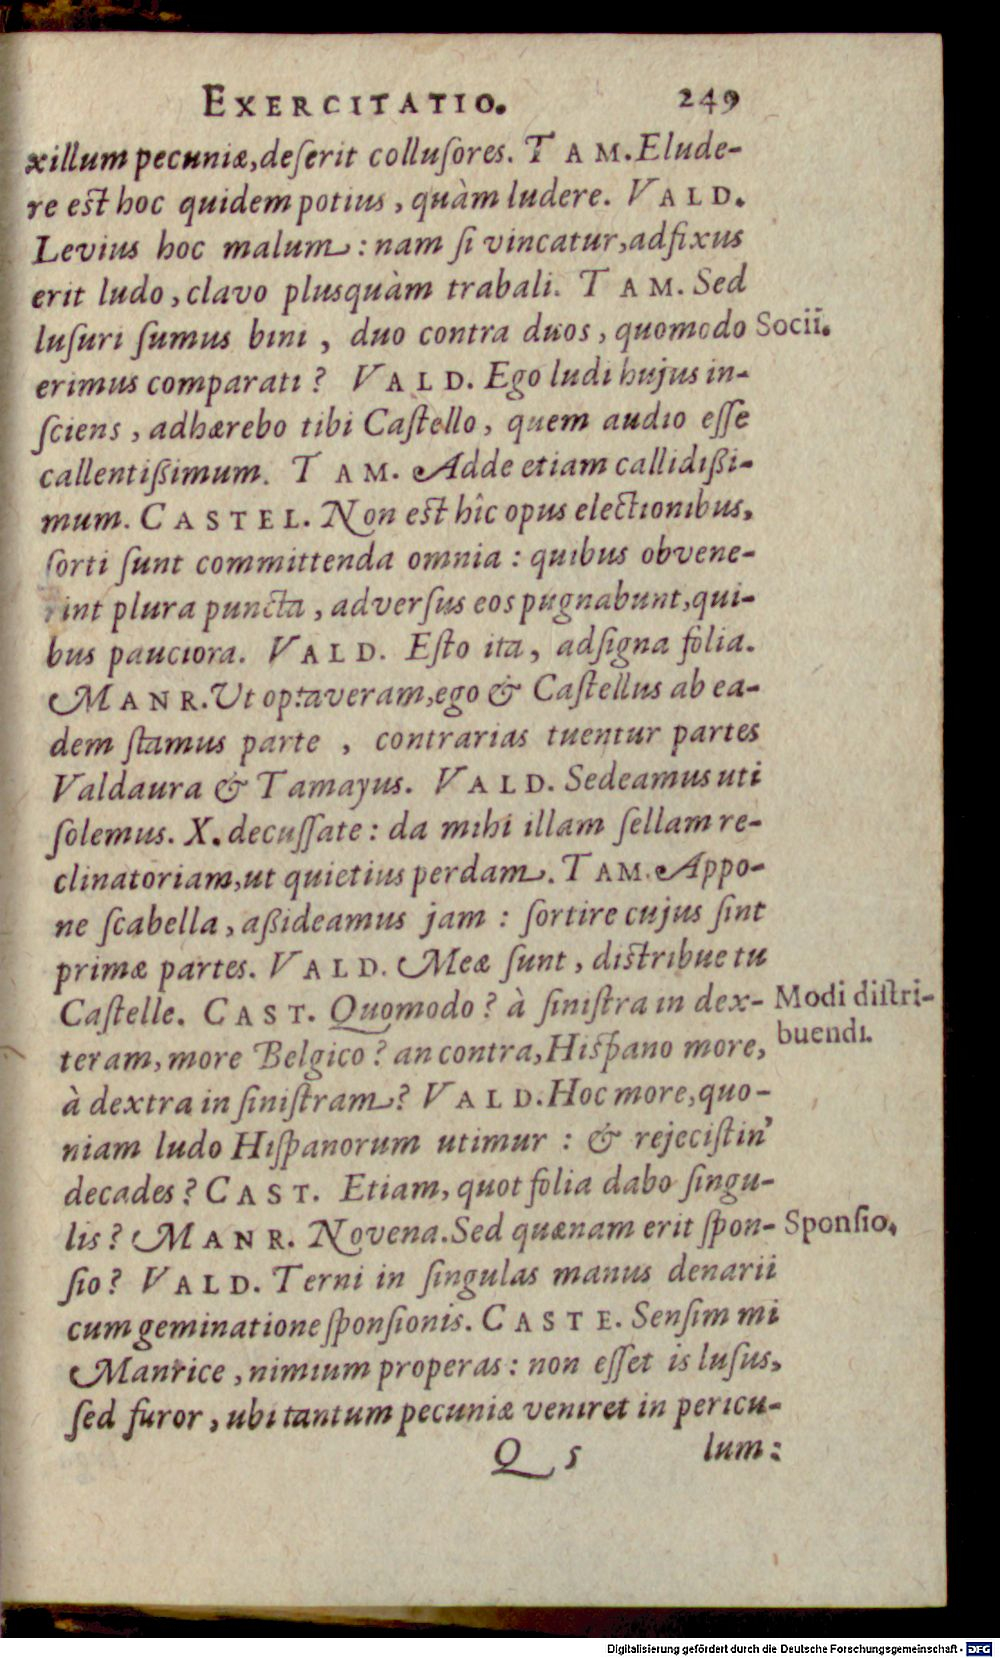 EXERCITATIO. 249
xillum pecuniæ, deſerit colluſores. TAM. Elude-
re eſt hoc quidem potius, quàm ludere. VALD.
Levius hoc malum: nam ſi vincatur, adfixus
erit ludo, clavo plusquàm trabali. TAM. Sed
luſuri ſumus bini, duo contra duos, quomodo Socii.
erimus comparati? VALD. Ego ludi hujus in-
ſciens, adhærebo tibi Caſtello, quem audio eſſe
callentißimum. TAM. Adde etiam callidißi-
mum. CASTEL. Non eſt hîc opus electionibus,
ſorti ſunt committenda omnia: quibus obvene-
rint plura puncta, adverſus eos pugnabunt, qui-
bus pauciora. VALD. Eſto ita, adſigna folia.
MANR. Ut optaveram, ego & Caſtellus ab ea-
dem ſtamus parte, contrarias tuentur partes
Valdaura & Tamayus. VALD. Sedeamus uti
ſolemus. X. decuſſate: da mihi illam ſellam re-
clinatoriam, ut quietius perdam. TAM. Appo-
ne ſcabella, aßideamus jam: ſortire cujus ſint
primæ partes. VALD. Meæ ſunt, diſtribue tu
Caſtelle. CAST. Quomodo? à ſiniſtra in dex- Modi diſtri-
teram, more Belgico? an contra, Hiſpano more, buendi.
à dextra in ſiniſtram? VALD. Hoc more, quo-
niam ludo Hiſpanorum utimur: & rejeciſtin'
decades? CAST. Etiam, quot folia dabo ſingu-
lis? MANR. Novena. Sed quænam erit ſpon- Sponſio.
ſio? VALD. Terni in ſingulas manus denarii
cum geminatione ſponſionis. CASTE. Senſim mi
Manrice, nimium properas: non eſſet is luſus,
ſed furor, ubi tantum pecuniæ veniret in pericu-
Q 5 lum:
Digitalisierung gefördert durch die Deutsche Forschungsgemeinschaft - DFG